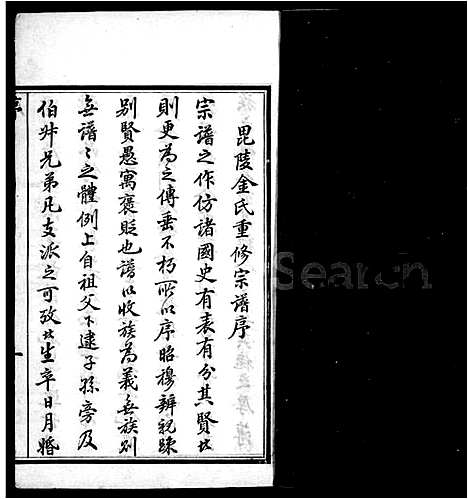 毘陵金氏重修宗譜序
宗譜之作仿諸國史有表有分其賢者
則更為之傳垂不朽所以序昭穆辨親疎
別賢愚寓褒貶也譜以收族為義無族則
無譜譜之體例上自祖父下逮子孫旁及
伯叔兄弟凡支派之可攷者生卒日月婚
序
一
Search